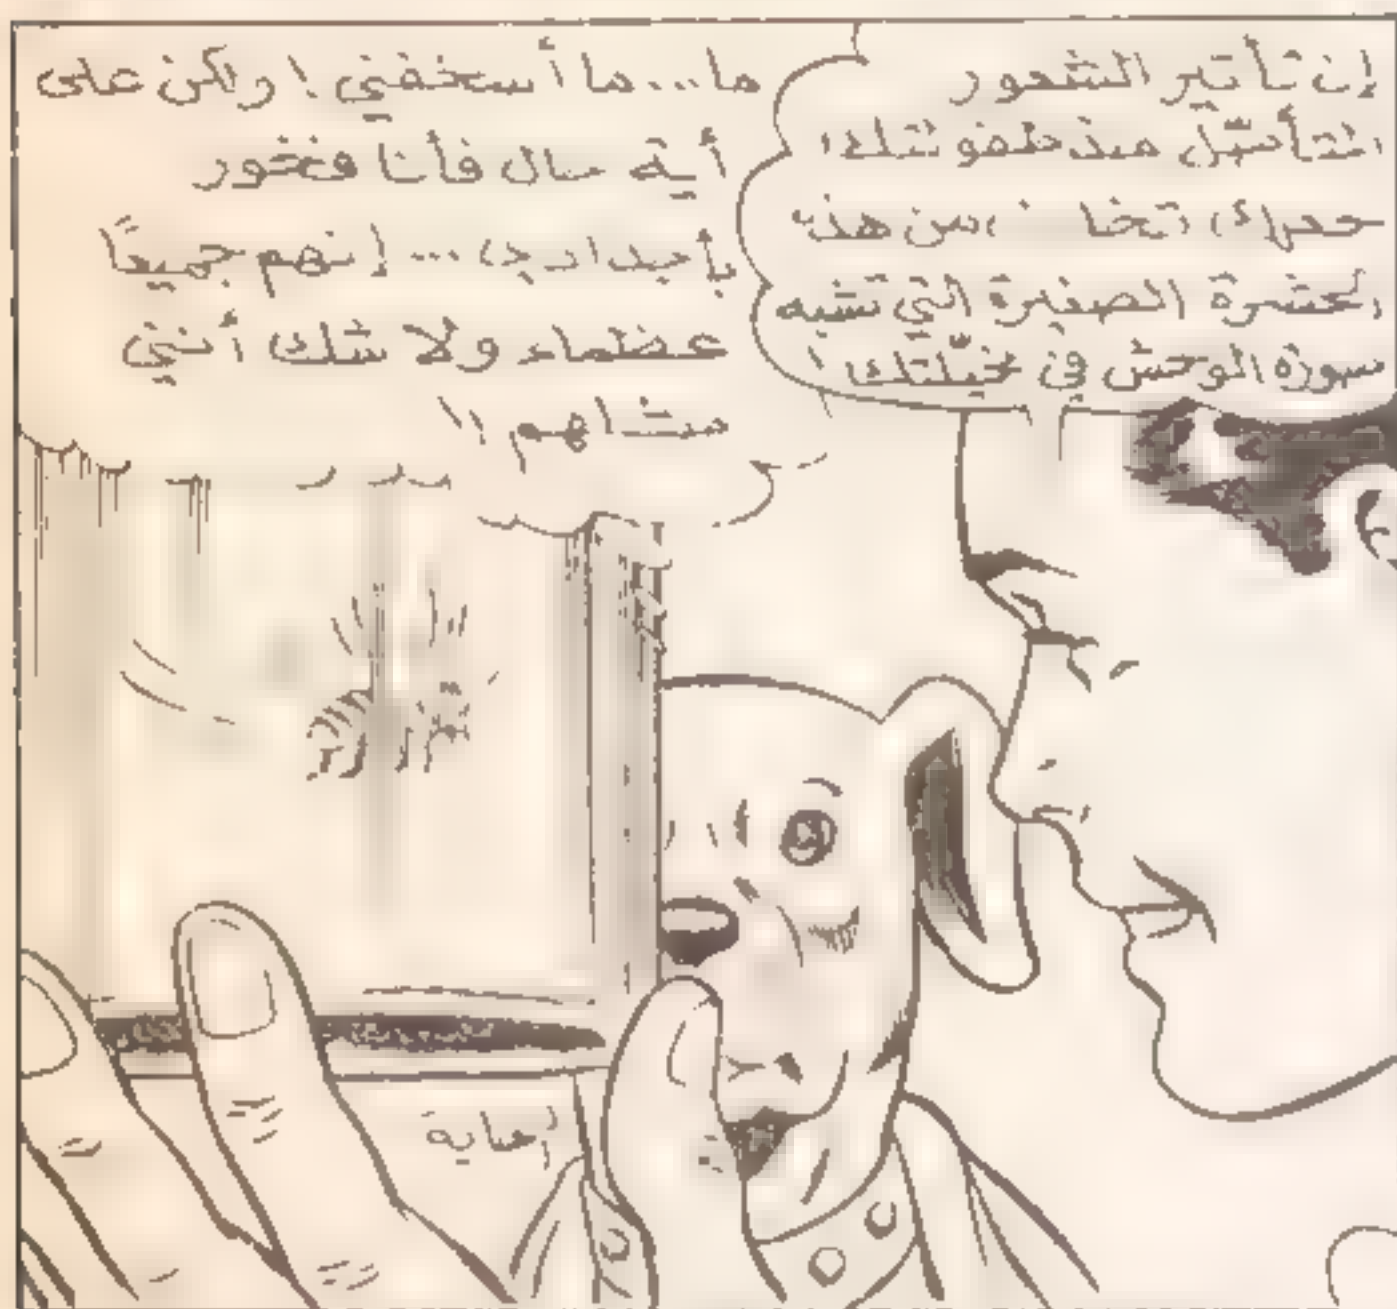 إن تأثير الشعور
المتأصّل منذ طفولتك
جعلك تخا من هذه
الحشرة الصغيرة التي تشبه
صورة الوحش في مخيّلتك!
ما... ما أسخفني! ولكن على
أية حال فأنا فخور
بأجدادي... إنهم جميعًا
عظماء ولا شك أنني
مثلهم!!